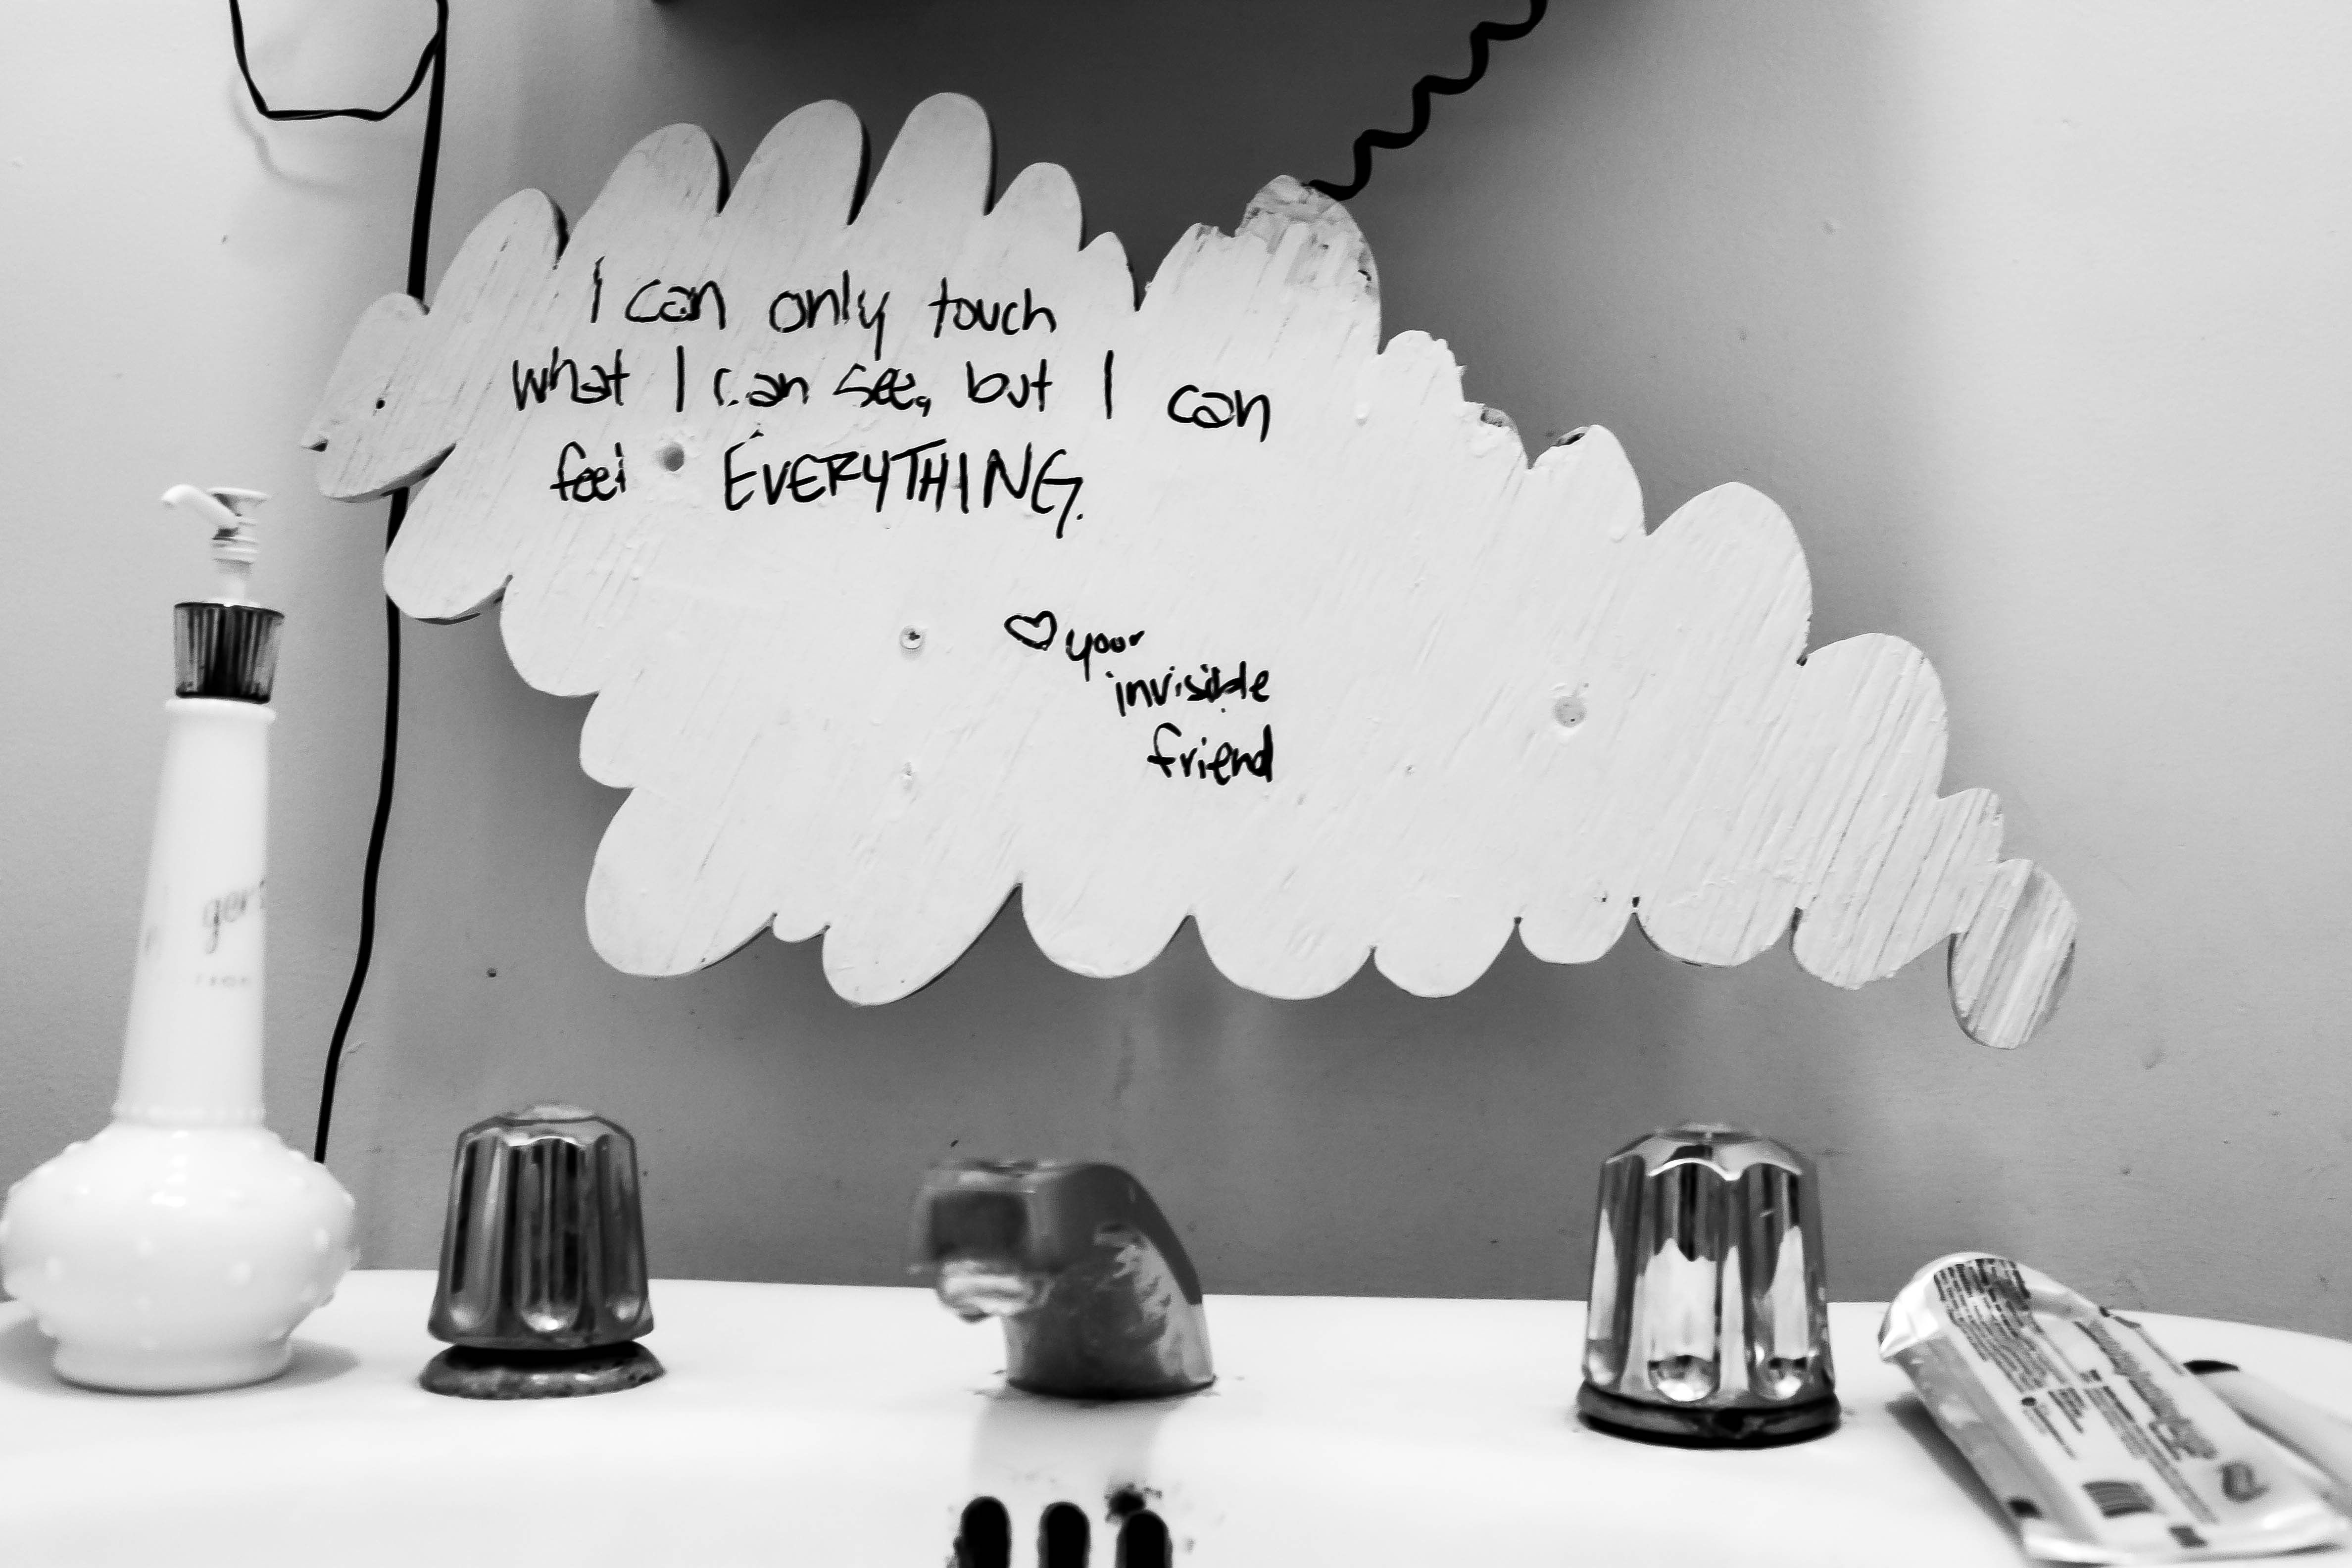 I can only touch
what I can see, but I can
feel EVERYTHING.
♡ your
invisible
friend